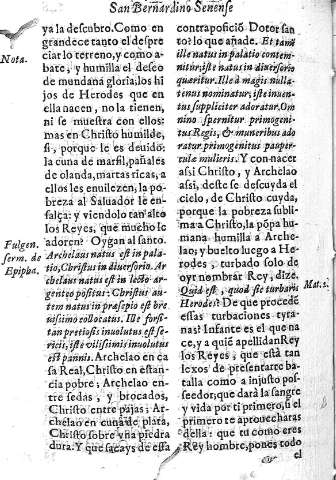 San Bernardino Senense
ya la descubro. Como en
grandece tanto el despre
ciar lo terreno, y como a-
bate, y humilla el deseo
de mundana gloria, los hi
jos de Herodes que en
ella nacen, no la tienen,
ni se muestra en ellos:
mas en Christo humilde,
si, porque le es deuido:
la cuna de marfil, pañales
de olanda, martas ricas, a
ellos les enuilezen, la po
breza al Saluador le en-
salça: y viendolo tan alto
los Reyes, que mucho le
adoren? Oygan al santo.
Archelaus natus est in pala-
tio, Christus in diuersorio. Ar
chelaus natus est in lecto ar-
genteo positus: Christus au-
tem natus in præsepio est bre
uissimo collocatus. Ille forsi-
tan pretiosis inuolutus est se-
ricis, iste vilissimis inuolutus
est pannis. Archelao en ca
sa Real, Christo en estan-
cia pobre; Archelao en
tre sedas, y brocados,
Christo entre pajas; Ar-
chelao en cuna de plata,
Christo sobre vna piedra
dura. Y que sacays de essa
Nota.
Fulgen.
serm. de
Epipha.
contraposiciõ Dotor san
to? lo que añade. Et tamẽ
ille natus in palatio contem-
nitur, iste natus in diuersorio
quæritur. Ille à magis nulla-
tenus nominatur, iste inuen-
tus suppliciter adoratur. Om
nino spernitur primogeni-
tus Regis, & muneribus ado
ratur primogenitus pauper-
culæ mulieris. Y con nacer
assi Christo, y Archelao
assi, deste se descuyda el
cielo, de Christo cuyda,
porque la pobreza subli-
ma a Christo, la põpa hu-
mana humilla a Arche
lao; y buelto luego a He-
rodes, turbado solo de
oyr nombrar Rey, dize.
Quid est, quod sic turbaris
Herodes? De que procedẽ
essas turbaciones tyra-
nas? Infante es el que na
ce, y a quiẽ apellidan Rey
los Reyes, que està tan
lexos de presentarte ba-
talla como a injusto pos-
seedor, que darà la sangre
y vida por ti primero, si el
primero te aprouecharas
della: que tu como eres
Rey hombre, pones todo
Mat. 2.
el